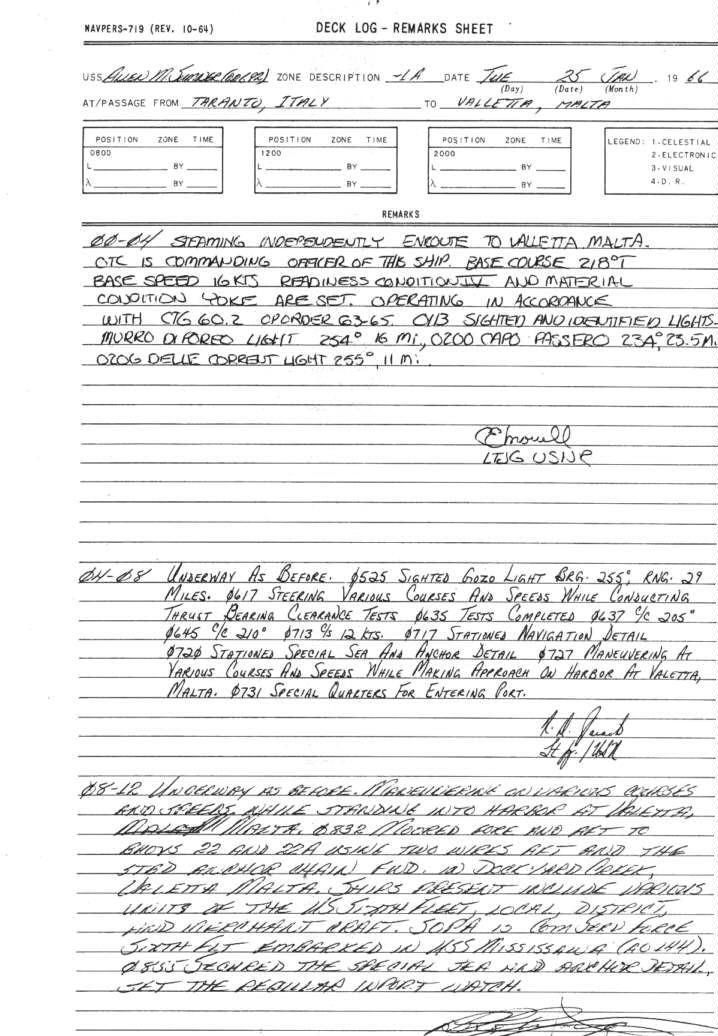 NAVPERS-719 (REV. 10-64) DECK LOG – REMARKS SHEET
USS ALLEN M. SUMNER (DD692) ZONE DESCRIPTION -1A DATE TUE 25 JAN . 19 66
(Day) (Date) (Month)
AT/PASSAGE FROM TARANTO, ITALY TO VALLETTA, MALTA
POSITION ZONE TIME
0800
L BY
λ BY
POSITION ZONE TIME
1200
L BY
λ BY
POSITION ZONE TIME
2000
L BY
λ BY
LEGEND: 1-CELESTIAL
2-ELECTRONIC
3-VISUAL
4-D. R.
REMARKS
00-04 STEAMING INDEPENDENTLY ENROUTE TO VALLETTA MALTA.
OTC IS COMMANDING OFFICER OF THIS SHIP. BASE COURSE 218°T
BASE SPEED 16 KTS READINESS CONDITION IV AND MATERIAL
CONDITION YOKE ARE SET. OPERATING IN ACCORDANCE
WITH CTG 60.2 OPORDER 63-65. 0113 SIGHTED AND IDENTIFIED LIGHTS-
MURRO DI PORCO LIGHT 254° 16 Mi, 0200 CAPO PASSERO 234°, 23.5M.
0206 DELLE CORRENT LIGHT 255°, 11 Mi.
LTJG USNR
04-08 UNDERWAY AS BEFORE. 0525 SIGHTED GOZO LIGHT BRG. 255°, RNG. 29
MILES. 0617 STEERING VARIOUS COURSES AND SPEEDS WHILE CONDUCTING
THRUST BEARING CLEARANCE TESTS 0635 TESTS COMPLETED 0637 C/C 205°
0645 C/C 210° 0713 C/S 12 KTS. 0717 STATIONED NAVIGATION DETAIL
0720 STATIONED SPECIAL SEA AND ANCHOR DETAIL 0727 MANEUVERING AT
VARIOUS COURSES AND SPEEDS WHILE MAKING APPROACH ON HARBOR AT VALETTA,
MALTA. 0731 SPECIAL QUARTERS FOR ENTERING PORT.
Lt jg. / USN
08-12 UNDERWAY AS BEFORE. MANEUVERING ON VARIOUS COURSES
AND SPEEDS, WHILE STANDING INTO HARBOR AT VALETTA,
MALTA. 0832 MOORED FORE AND AFT TO
BUOYS 22 AND 22A USING TWO WIRES AFT AND THE
STBD ANCHOR CHAIN FWD. IN DOCKYARD CREEK,
VALETTA MALTA. SHIPS PRESENT INCLUDE VARIOUS
UNITS OF THE US SIXTH FLEET, LOCAL, DISTRICT,
AND MERCHANT CRAFT. SOPA IS COM SERV FORCE
SIXTH FLT EMBARKED IN USS MISSISSINEWA (AO 144).
0855 SECURED THE SPECIAL SEA AND ANCHOR DETAIL,
SET THE REGULAR INPORT WATCH.